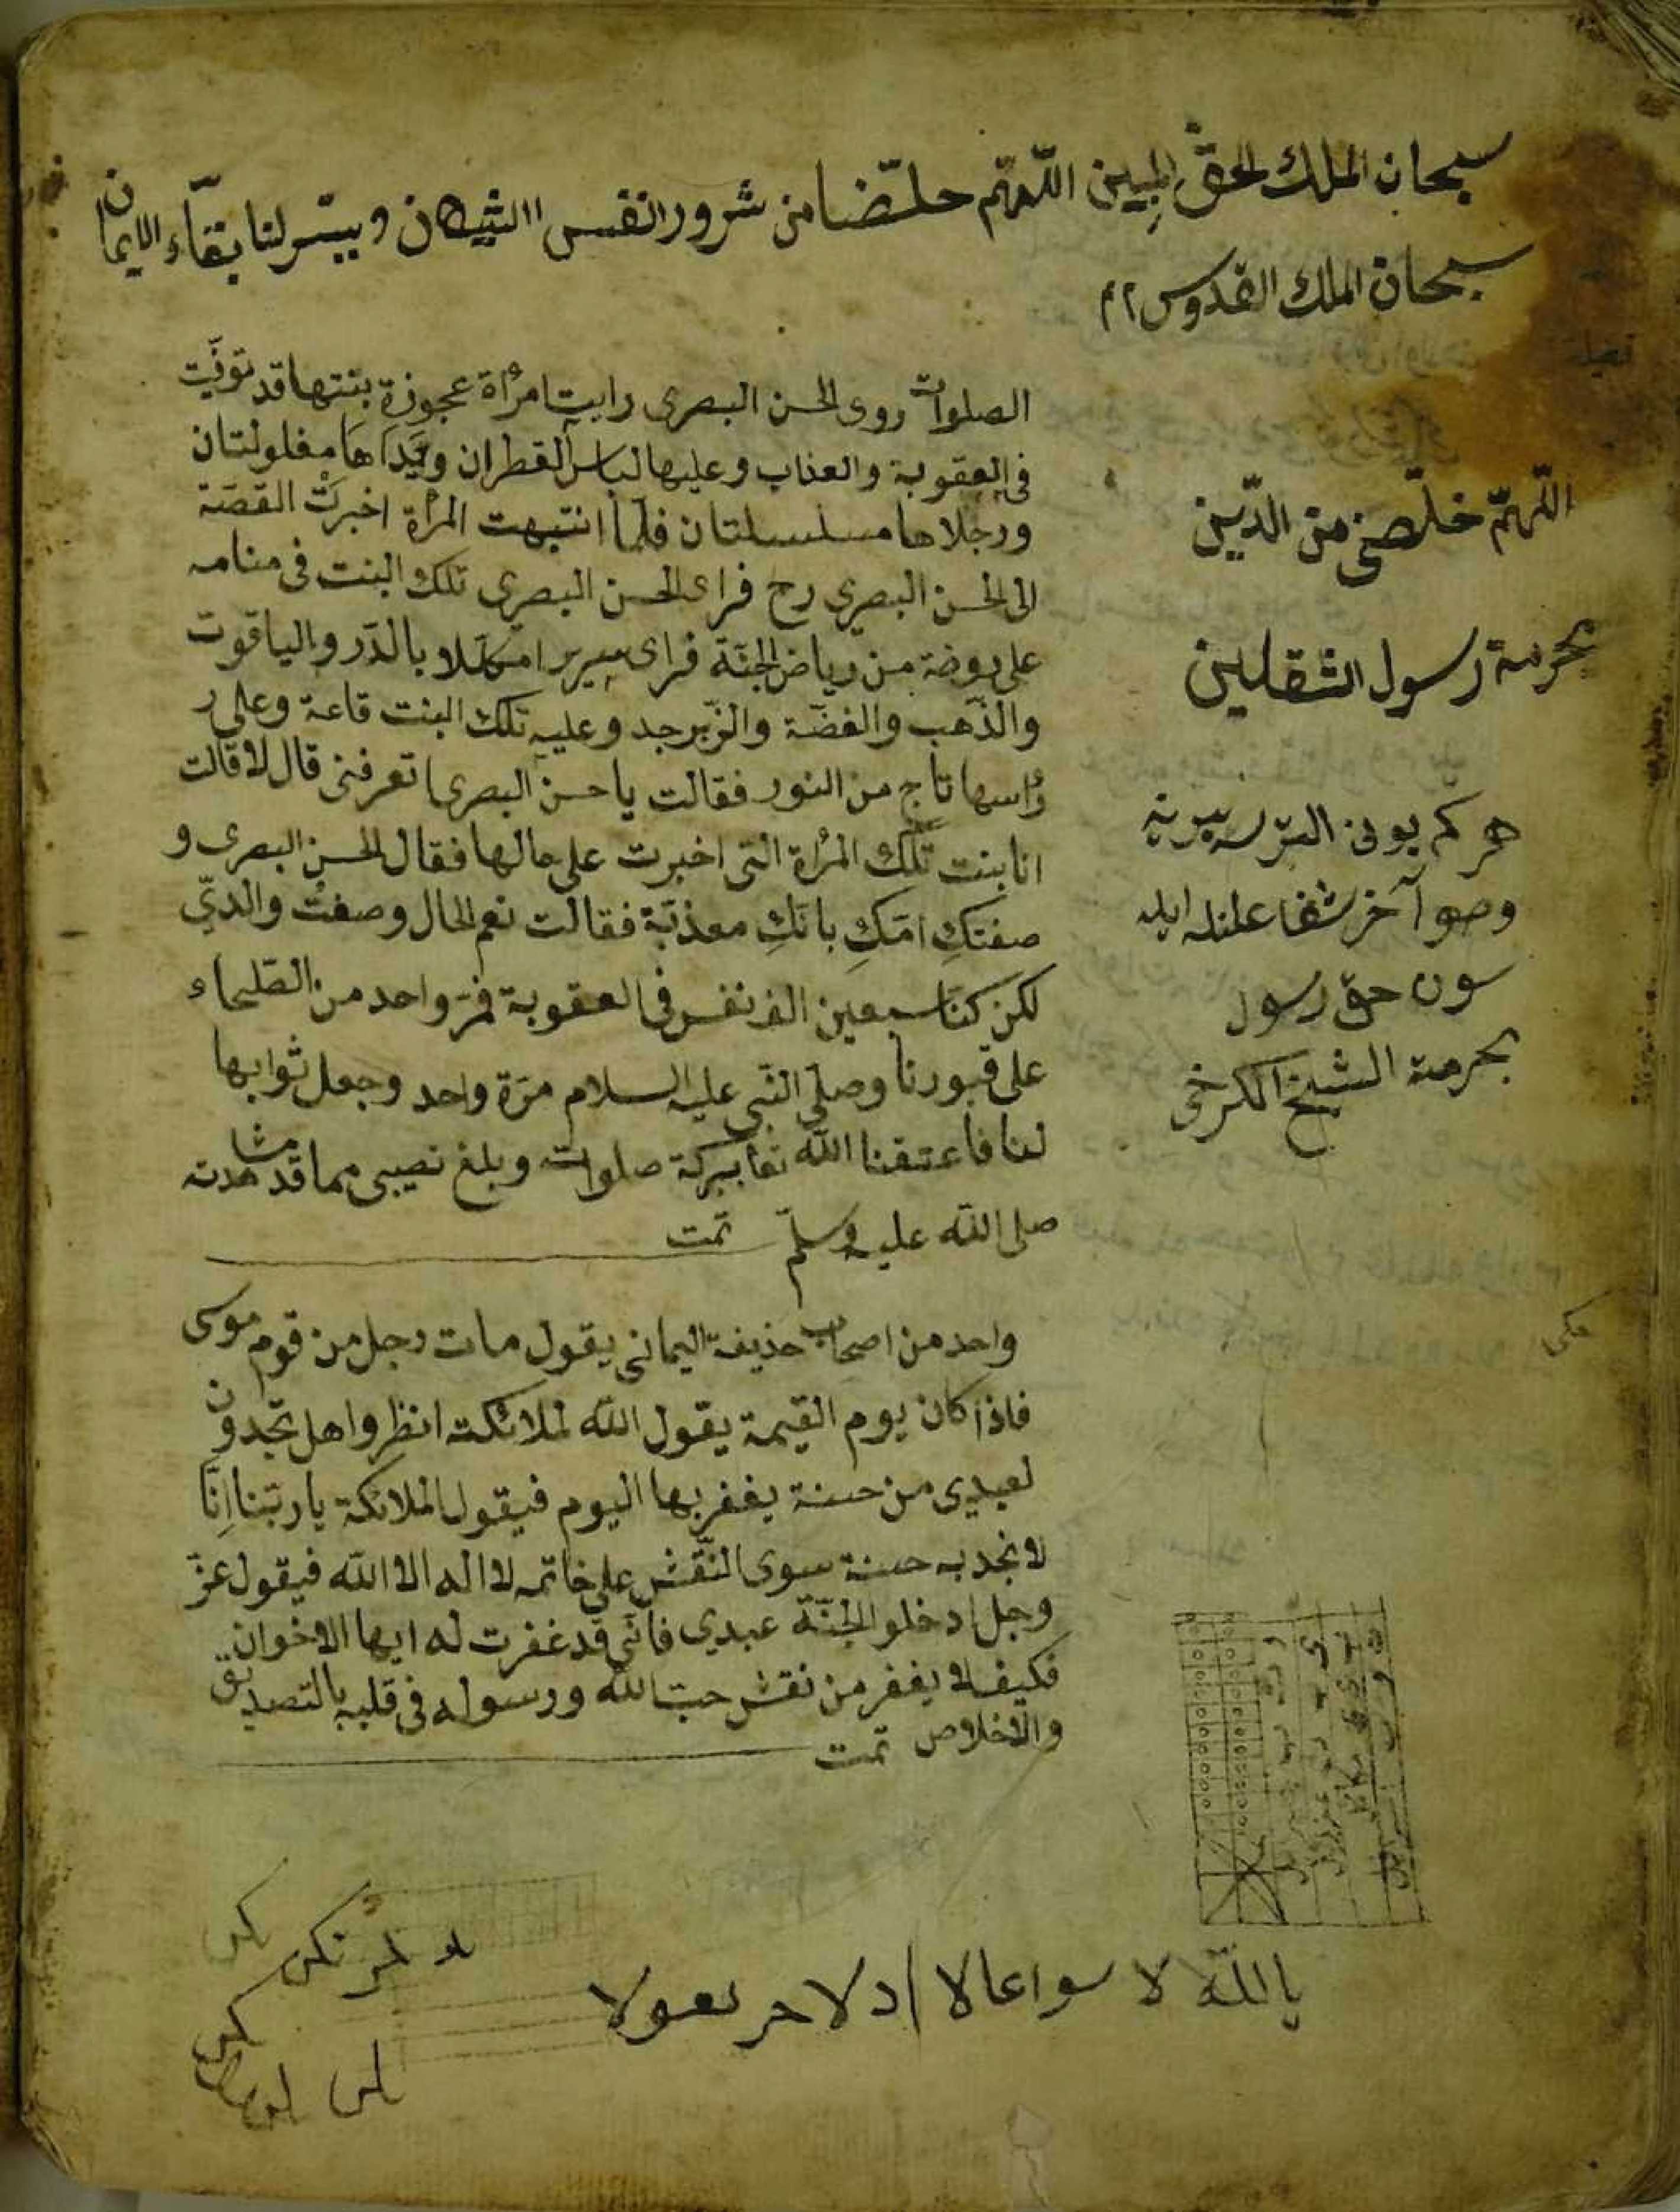 سبحان الملك الحقّ المبين اللّهمّ حلّضا من شرور النفس االشيطان ويسّر لنا بقآء الايمان
سبحان الملك القدوس ٢م
الصلوات روى الحسن البصرى رايت امرأة عجوزة بنتها قد توفّيت
فى العقوبة والعذاب وعليها لباس القطران ويداها مغلولتان
ورجلاها مسلسلتان فلمّا انتبهت المرأة اخبرت القصّة
الى الحسن البصرى رح فراى الحسن البصرى تلك البنت فى منامه
على روضة من رياض الجنّة فراى سريرا مكلّلا بالدّر والياقوت
والذّهب والفضّة والزّبرجد وعليه تلك البنت قاعة وعلى ر
ؤاسها تاج من النور فقالت يا حسن البصرى اتعرفنى قال لا قالت
انا بنت تلك المرأة التى اخبرت على حالها فقال الحسن البصرى و
صفتكِ امّكِ بانّكِ معذبّة فقالت نعم الحال وصفتْ والدتي
لكن كنّا سبعين الف نفس فى العقوبة فمرّ واحد من الصّلحاء
على قبورنا وصلّى النّبى عليه السلام مرّة واحد وجعل ثوابها
لنا فاعتقنا الله تعا ببركة صلوات وبلغ نصيبى مما قد شاهدته
صلى الله عليه وسلّم تمّت
واحد من اصحاب حذيفة اليمانى يقول مات رجل من قوم موسى
فاذا كان يوم القيمة يقول الله لملائكته انظروا هل تجدون
لعبدى من حسنة يغفر بها اليوم فيقول الملائكة يا ربّنا اِنّا
لا نجد به حسنة سوى النّقش على خاتمه لا اله الا الله فيقول عزّ
وجل ادخلوا الجنّة عبدي فانّى قد غفرت له ايها الاخوان
فكيف لا يغفر من نقش حبّ الله ورسوله فى قلبه بالتصديق
والاخلاص تمّت
اللّهمّ خلّصنى من الدّين
بحرمة رسول الثقلين
هركم بونى
وصوآخر شفا
سون حق رسول
بحرمة الشيخ الكرخى
يا للّه لا